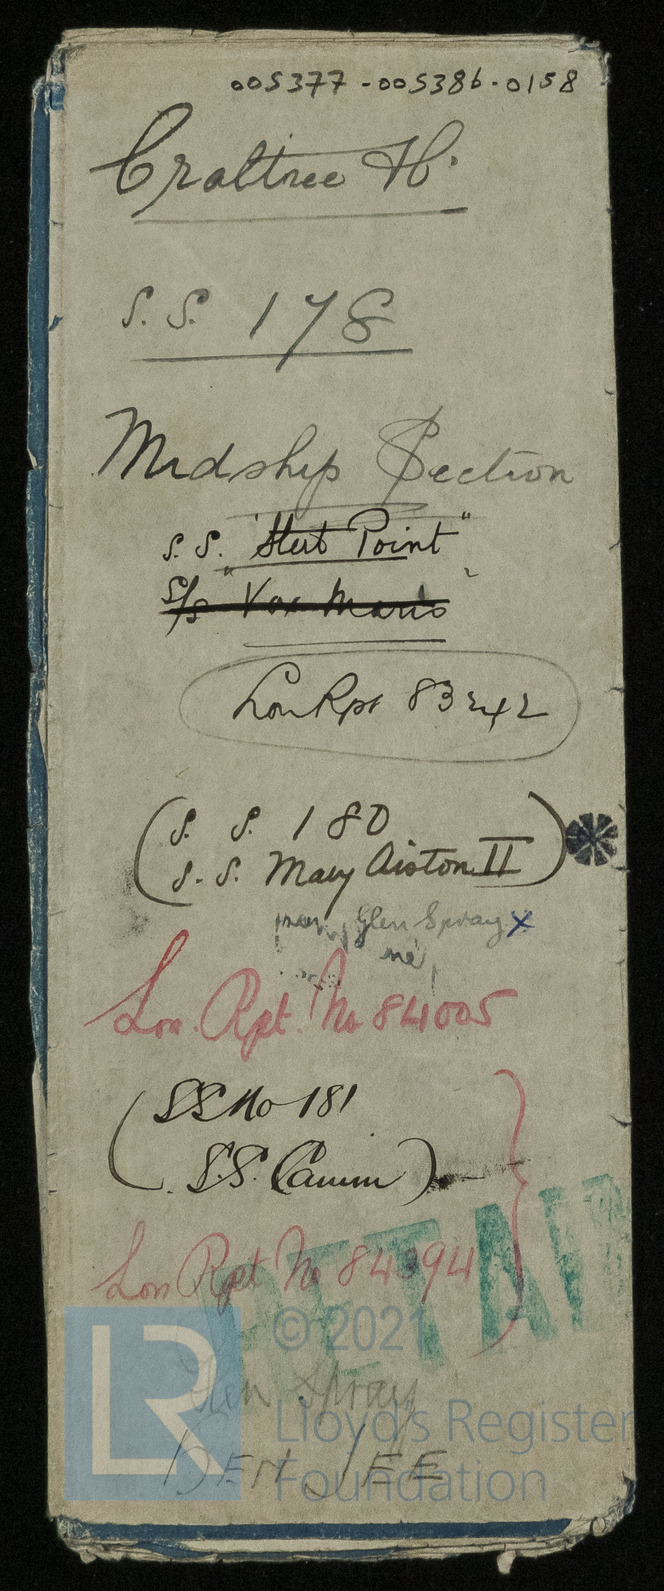 005377-005386-0158
Crabtree H.
S.S. 178
Midship Section
S.S. "Stert Point"
S/S "Vox Maris"
Lon Rpt 83242
(S. S. 180
S.S. Mary Aiston II)
Glen Spray x
Lon. Rpt. No 84005
(SS No 181
S.S. Camm)
Lon Rpt No 84394
RETAIN
LR
© 2021
Glen Spray
Lloyd's Register
DEN JEE
Foundation